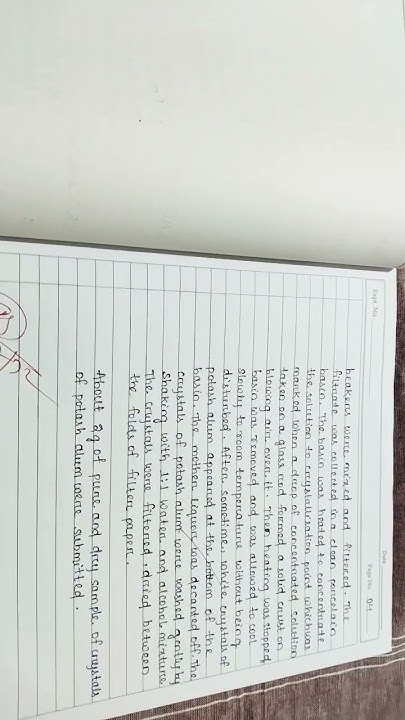 Date
Expt. No.
Page No. 04
beakers were mixed and filtered. The
filtrate was collected in a clean porcelain
basin. The basin was heated to concentrate
the solution to crystallization point which was
marked when a drop of concentrated solution
taken on a glass rod formed a solid crust on
blowing air over it. Then heating was stopped,
basin was removed and was allowed to cool
slowly to room temperature without being
disturbed. After sometime, white crystals of
potash alum appeared at the bottom of the
basin. The mother liquor was decanted off. The
crystals of potash alum were washed gently by
shaking with 1:1 water and alcohol mixture.
The crystals were filtered, dried between
the folds of filter paper.
About 2g of pure and dry sample of crystals
of potash alum were submitted.